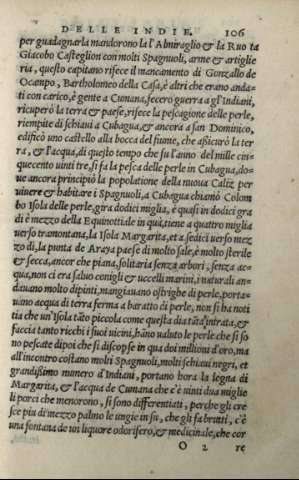 DELLE INDIE. 106
per guadagnarla mandorono la l'Almiraglio & la Ruota
Giacobo Casteglion con molti Spagnuoli, arme & artiglie
ria, questo capitano rifece il mancamento di Gonzallo de
Ocampo, Bartholomeo della Casa, è altri che erano anda-
ti con carico, è gente a Cumana, fecero guerra a gl'Indiani,
ricuperò la terra & paese, rifece la pescagione delle perle,
riempite di schiaui a Cubagua, & ancora a san Dominico,
edificò uno castello alla bocca del fiume, che assicurò la ter
ra, & l'acqua, di questo tempo che fu l'anno del mille cin-
quecento uinti tre, si fa la pesca delle perle in Cubagua, do-
ue ancora principiò la popolatione della nuoua Caliz per
uiuere & habitare i Spagnuoli, a Cubagua chiamò Colom
bo Isola delle perle, gira dodici miglia, è quasi in dodici gra
di è mezzo della Equinottiale in qua, tiene a quattro miglia
uerso tramontana, la Isola Margarita, et a sedici uerso mez
zo dì, la punta de Araya paese di molto sale, è molto sterile
& secca, ancor che piana, solitaria senza arbori, senza ac-
qua, non ci era saluo conigli & uccelli marini, i naturali an-
dauano molto dipinti, mangiauano ostrighe di perle, porta-
uano acqua di terra ferma a baratto di perle, non si ha noti
tia che un'Isola tāto piccola come questa dia tāta intrata, &
faccia tanto ricchi i suoi uicini, hāno ualuto le perle che si so
no pescate dipoi che si discopse in qua doi millioni d'oro, ma
all'incontro costano molti Spagnuoli, molti schiaui negri, et
grandissimo numero d'Indiani, portano hora la legna di
Margarita, & l'acqua de Cumana che c'è uinti dua miglie
li porci che menorono, si sono differentiati, perche gli cre
sce piu di mezzo palmo le ungie in su, che gli fa brutti, c'è
una fontana de un liquore odorifero, & medicinale, che cor
O 2 re